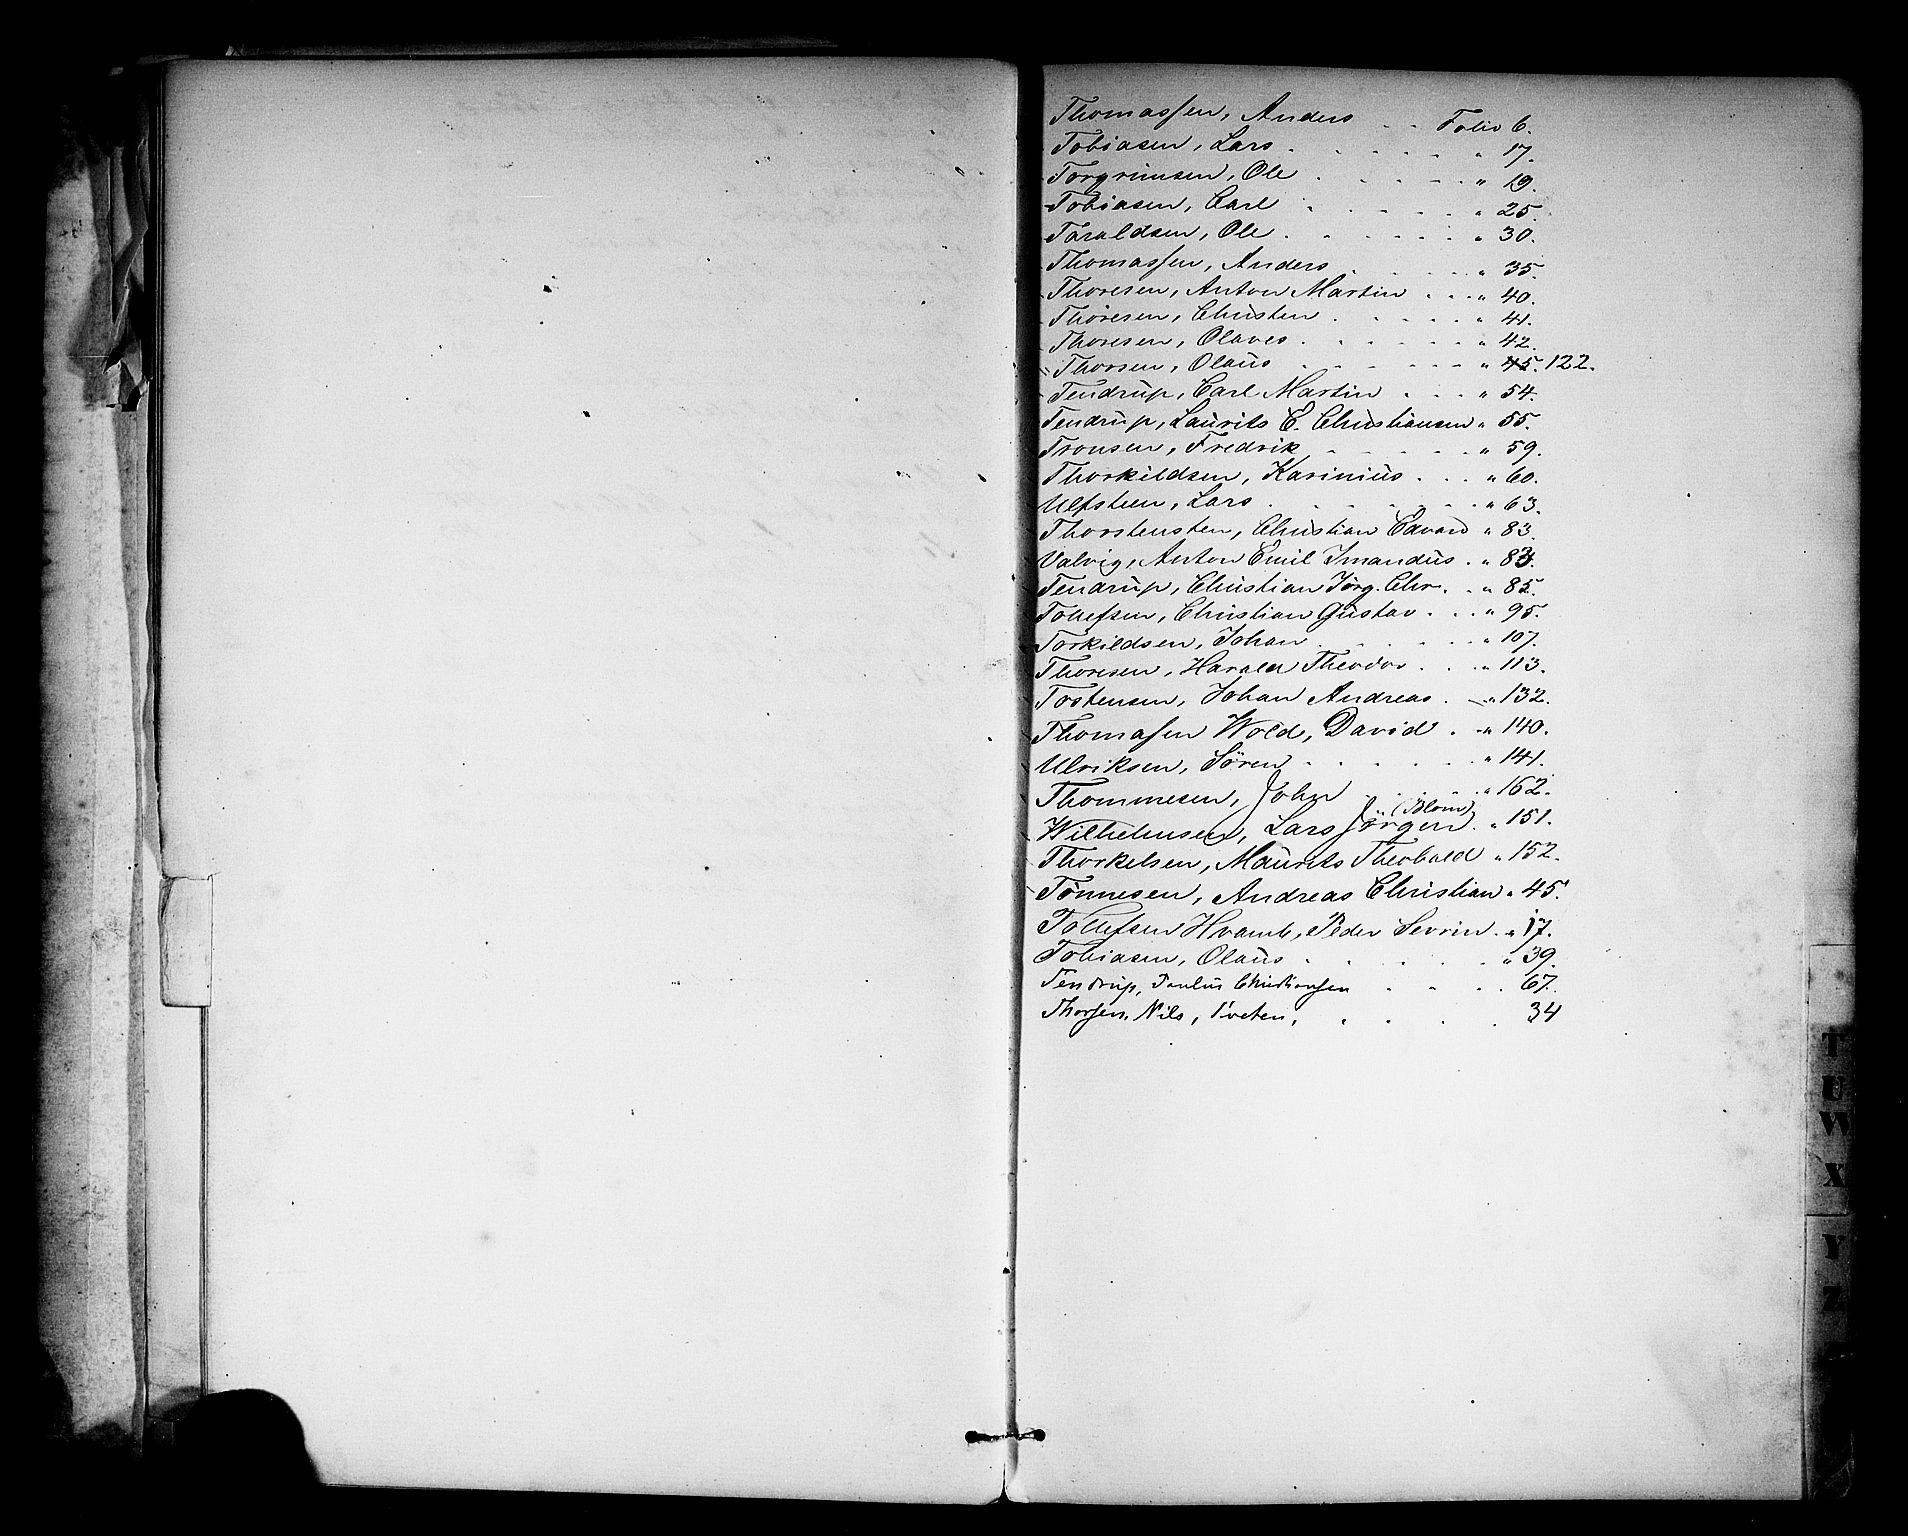 Thomassen, Anders . . Folio 6.
Tobiasen, Lars . . . . . " 17.
Torgrimsen, Ole . . . . " 19.
Tobiasen, Carl . . . . . " 25.
Taraldsen, Ole . . . . . " 30.
Thomassen, Anders . . . . " 35.
Thoresen, Anton Martin . . . " 40.
Thoresen, Christen . . . . " 41.
Thoresen, Olaves . . . . . " 42.
Thorsen, Olaus . . . . . " 45. 122.
Tendrup, Carl Martin . . . " 54.
Tendrup, Laurits E. Christiansen " 55.
Tronsen, Fredrik . . . . . " 59.
Thorkildsen, Karinius . . . " 60.
Ulfsteen, Lars . . . . . . " 63.
Thorstensten, Christian Edvard " 83.
Valvig, Anton Emil Imandus . " 83.
Tendrup, Christian Jörg. Chr. . " 85.
Tollefsen, Christian Gustav . . " 95.
Torkildsen, Johan . . . . . " 107.
Thoresen, Harald Theodor . . . " 113.
Tostensen, Johan Andreas . . " 132.
Thomasen Wold, David . . " 140.
Ulriksen, Sören . . . . . " 141.
Thommesen, John . . . . " 162.
(Blom)
Wilhelmsen, Lars Jörgen . " 151.
Thorkelsen, Maurits Theobald " 152.
Tönnesen, Andreas Christian " 45.
Tollefsen Hvamb, Peder Sevrin . " 17.
Tobiasen, Olaus . . . . . " 39.
Tendrup, Paulus Christiansen . . . . 67.
Thorsen, Nils, Tveten, . . . . 34
T
U
W
X
Y
Z